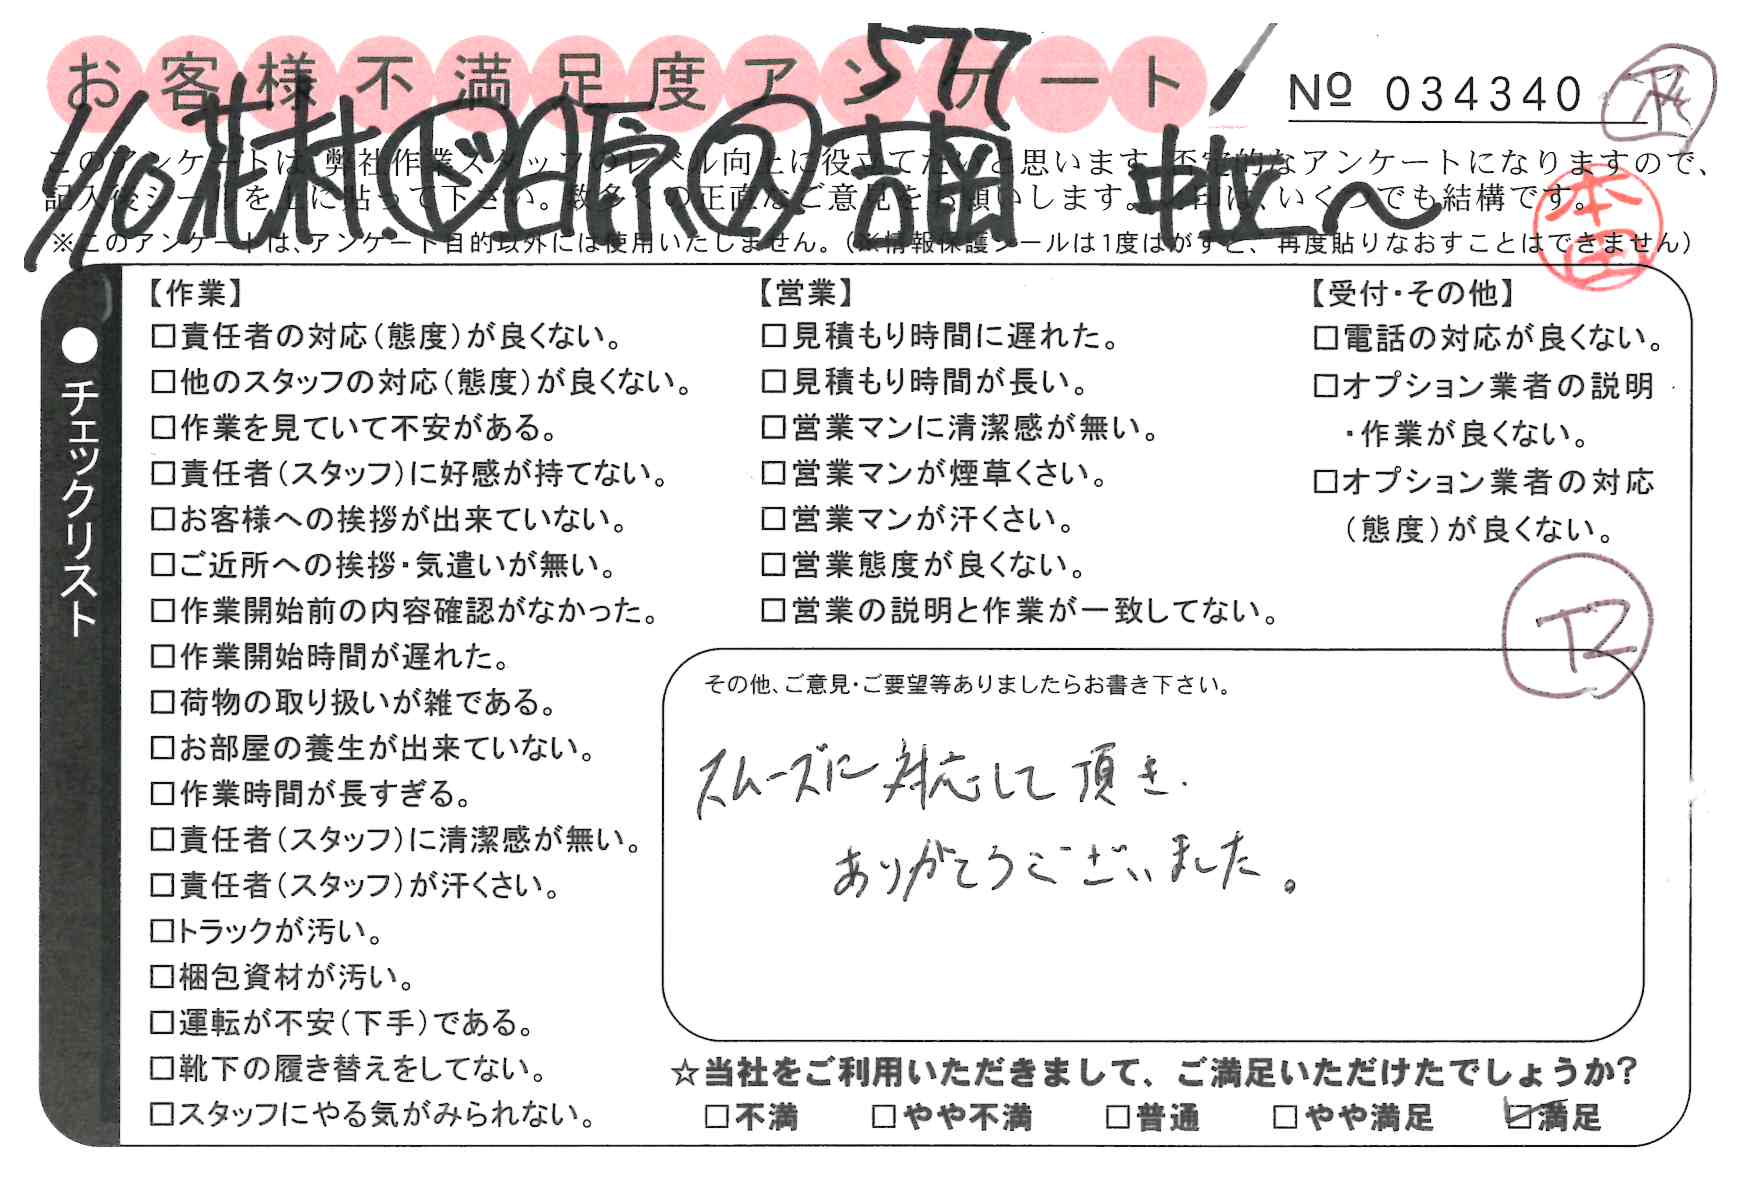 お客様不満足度アンケート
577
№ 034340
1/10 花村.
このアンケートは、弊社作業スタッフのレベル向上に役立てたいと思います。否定的なアンケートになりますので、
記入後シールを上に貼って下さい。数多くの正直なご意見をお願いします。レ印は、いくつでも結構です。
※このアンケートは、アンケート目的以外には使用いたしません。(※情報保護シールは1度はがすと、再度貼りなおすことはできません)
本田
●チェックリスト
【作業】
□責任者の対応(態度)が良くない。
□他のスタッフの対応(態度)が良くない。
□作業を見ていて不安がある。
□責任者(スタッフ)に好感が持てない。
□お客様への挨拶が出来ていない。
□ご近所への挨拶・気遣いが無い。
□作業開始前の内容確認がなかった。
□作業開始時間が遅れた。
□荷物の取り扱いが雑である。
□お部屋の養生が出来ていない。
□作業時間が長すぎる。
□責任者(スタッフ)に清潔感が無い。
□責任者(スタッフ)が汗くさい。
□トラックが汚い。
□梱包資材が汚い。
□運転が不安(下手)である。
□靴下の履き替えをしてない。
□スタッフにやる気がみられない。
【営業】
□見積もり時間に遅れた。
□見積もり時間が長い。
□営業マンに清潔感が無い。
□営業マンが煙草くさい。
□営業マンが汗くさい。
□営業態度が良くない。
□営業の説明と作業が一致してない。
【受付・その他】
□電話の対応が良くない。
□オプション業者の説明
・作業が良くない。
□オプション業者の対応
(態度)が良くない。
その他、ご意見・ご要望等ありましたらお書き下さい。
スムーズに対応して頂き.
ありがとうございました。
☆当社をご利用いただきまして、ご満足いただけたでしょうか?
□不満 □やや不満 □普通 □やや満足 ☑満足